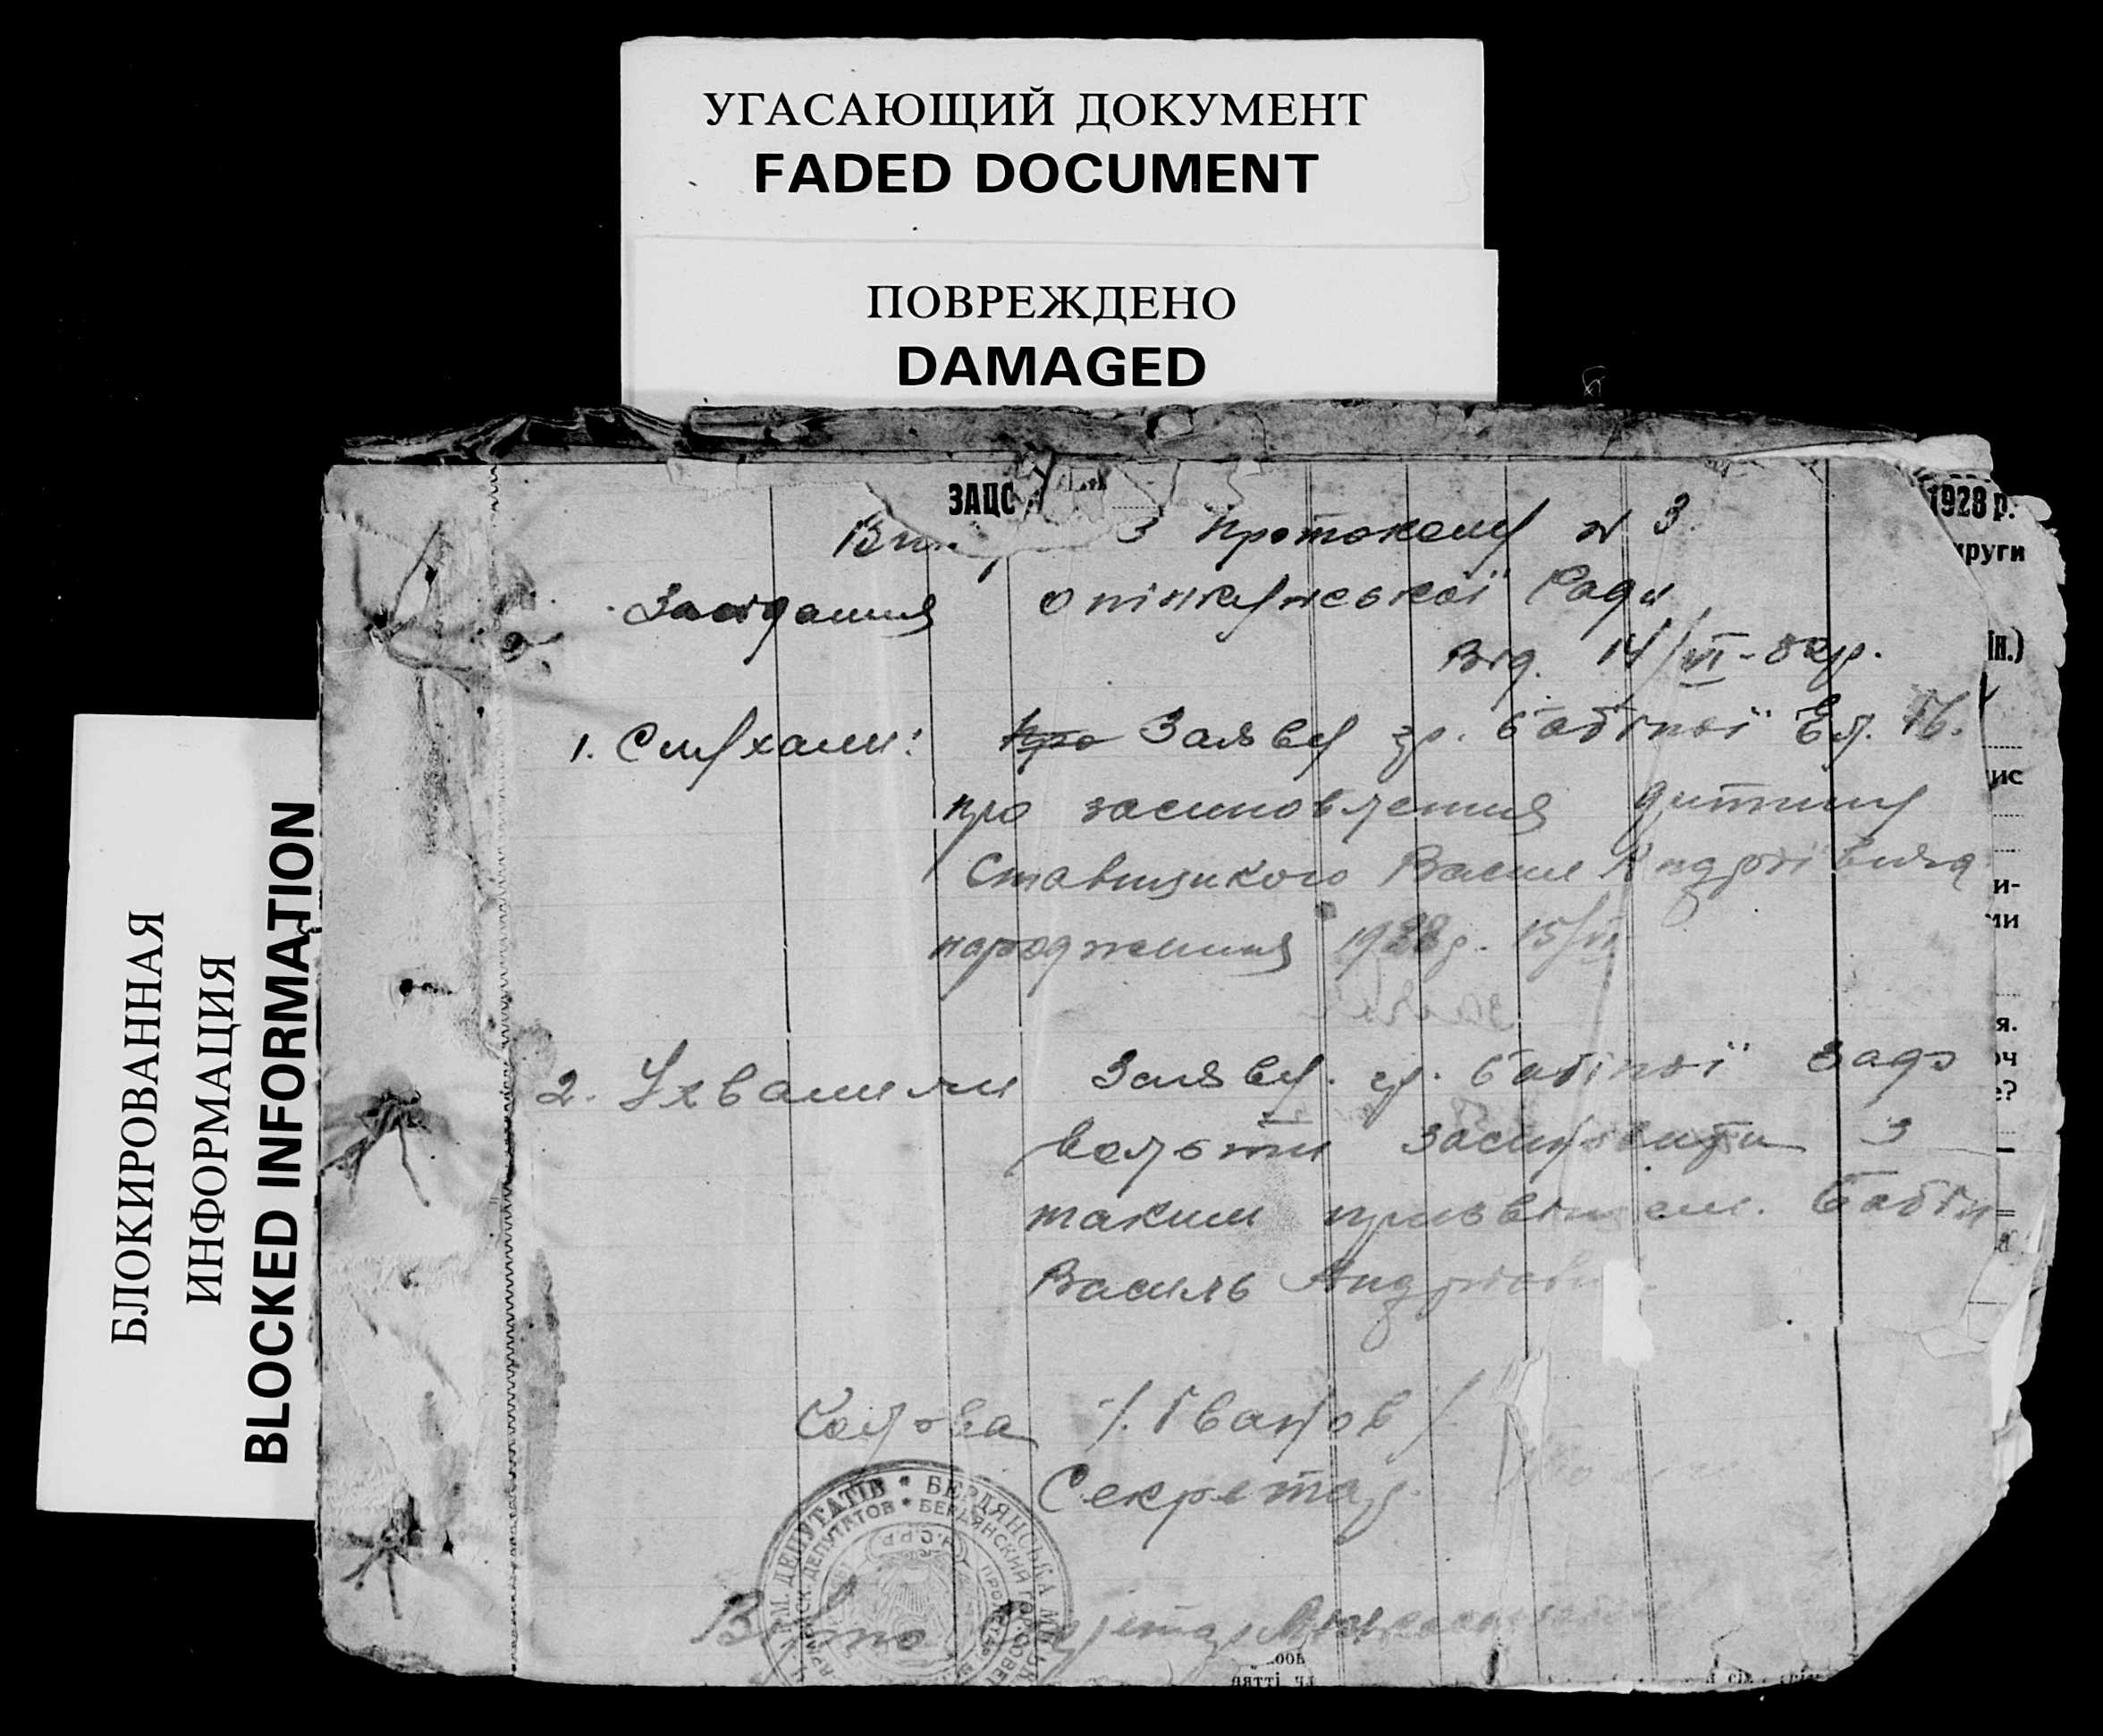 УГАСАЮЩИЙ ДОКУМЕНТ
FADED DOCUMENT
ПОВРЕЖДЕНО
DAMAGED
БЛОКИРОВАННАЯ
ИНФОРМАЦИЯ
BLOCKED INFORMATION
ЗАЦС
1928 р.
руги
Ви з протоколу № 3
Засідання опікунської Ради
від. 14/VI-
ін.)
1. Слухали: про Заяву гр. Бабіної
про засиновлення дитини
ис
Ставицкого Васил Андрієвича
и-
ми
народження 1928 р. 15/
2. Ухвалили Заяву. гр. Бабіної задо
я.
оч
е?
вольти засиновити з
таким призвіщем. Бабін
Василь Андрієви
Голова /. Іванов /
Секретар
ДЕПУТАТІВ * БЕРДЯНСЬКА МІСЬК
ДЕПУТАТОВ * БЕРДЯНСКИЙ ГОР. СОВЕТ
Вірно